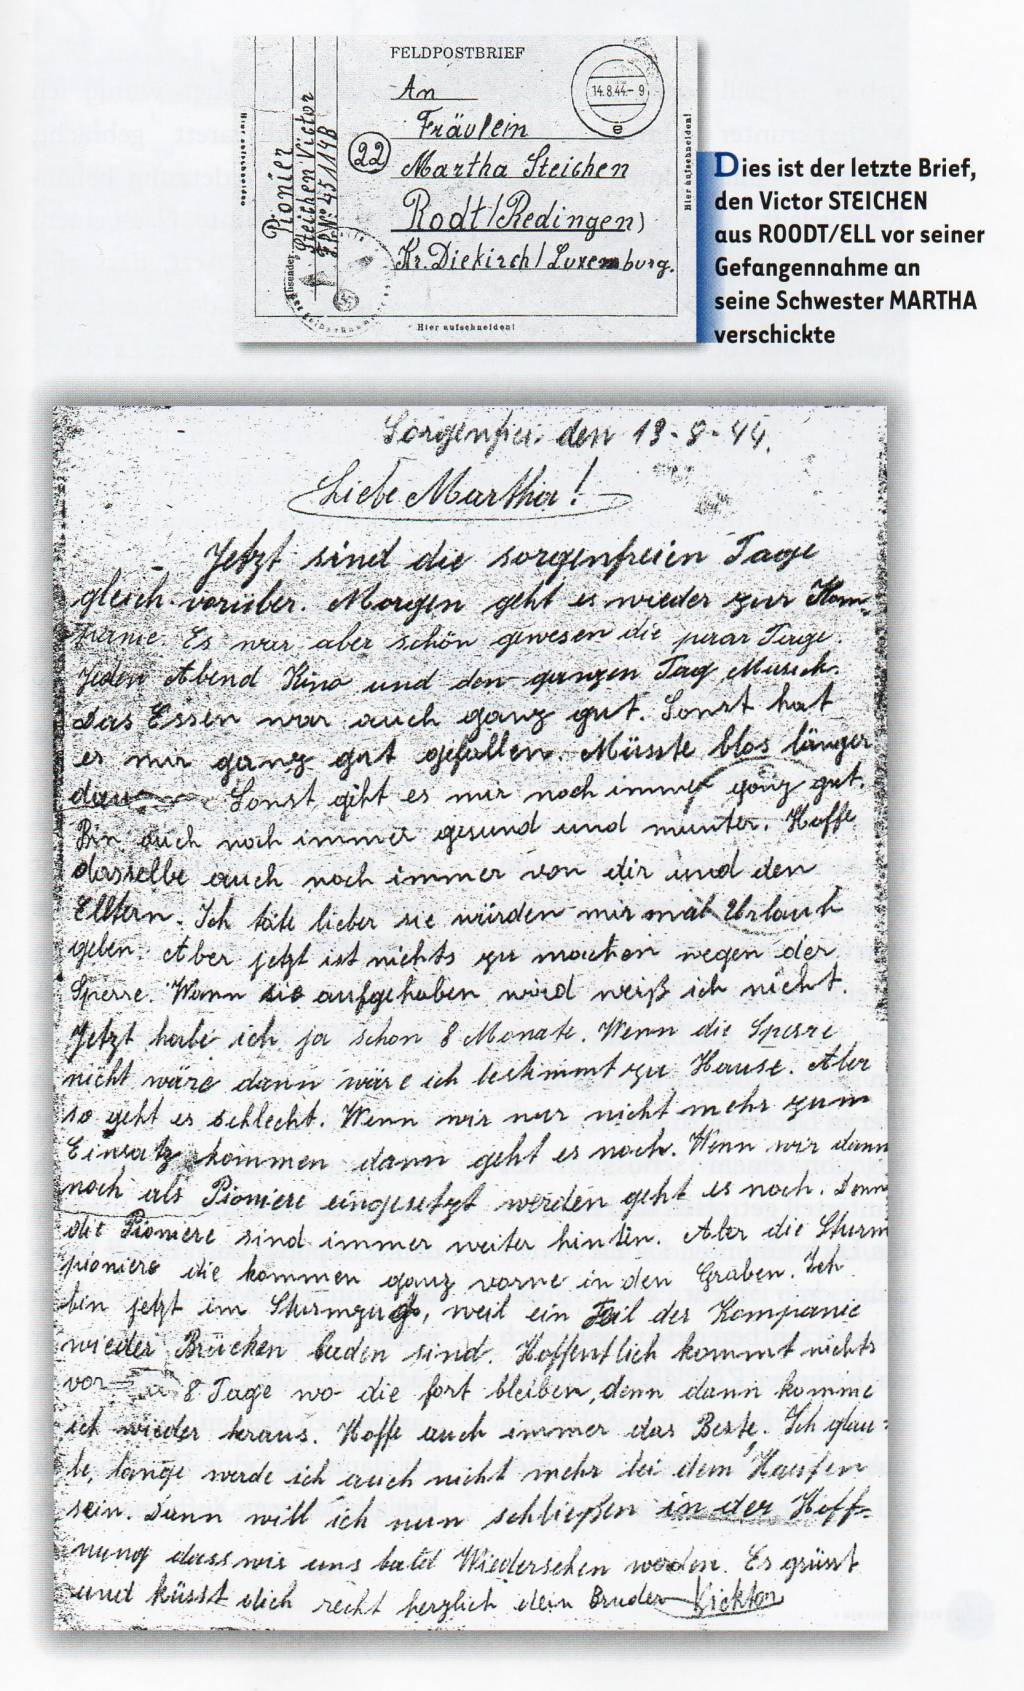 FELDPOSTBRIEF
An
Fräulein
Martha Steichen
Rodt/Redingen)
Kr. Diekirch/Luxemburg.
22
14.8.44-9
e
Hier aufschneiden!
Hier aufschneiden!
Absender:
Pionier
Steichen Victor
FPNº 45114B
Hier aufschneiden!
Dies ist der letzte Brief,
den Victor STEICHEN
aus ROODT/ELL vor seiner
Gefangennahme an
seine Schwester MARTHA
verschickte
Sorgenfrei. den 13-8-44.
Liebe Martha!
Jetzt sind die sorgenfreien Tage
gleich vorüber. Morgen geht es wieder zur Kom-
panie. Es war aber schön gewesen die paar Tage.
Jeden Abend Kino und den ganzen Tag Musick.
Das Essen war auch ganz gut. Sonst hat
es mir ganz gut gefallen. Müsste blos länger
Sonst geht es mir noch immer ganz gut.
Bin auch noch immer gesund und munter. Hoffe
dasselbe auch noch immer von dir und den
Elltern. Ich täte lieber sie würden mir mal Urlaub
geben. Aber jetzt ist nichts zu machen wegen der
Sperre. Wann sie aufgehoben wird weiß ich nicht.
Jetzt habe ich ja schon 8 Monate. Wenn die Sperre
nicht wäre dann wäre ich bestimmt zu Hause. Aber
so geht es schlecht. Wenn wir nur nicht mehr zum
Einsatz kommen dann geht es noch. Wenn wir dann
noch als Pioniere eingesetzt werden geht es noch. Denn
die Pioniere sind immer weiter hinten. Aber die Sturm
pioniere die kommen ganz vorne in den Graben. Ich
bin jetzt im Sturmzug, weil ein Teil der Kompanie
wieder Brücken baden sind. Hoffentlich kommt nichts
vor 8 Tage wo die fort bleiben, denn dann komme
ich wieder heraus. Hoffe auch immer das Beste. Ich glau-
be, lange werde ich auch nicht mehr bei dem Haufen
sein. Dann will ich nun schließen in der Hoff-
nung dass wir uns bald Wiedersehen werden. Es grüsst
und küsst dich recht herzlich dein Bruder Vicktor